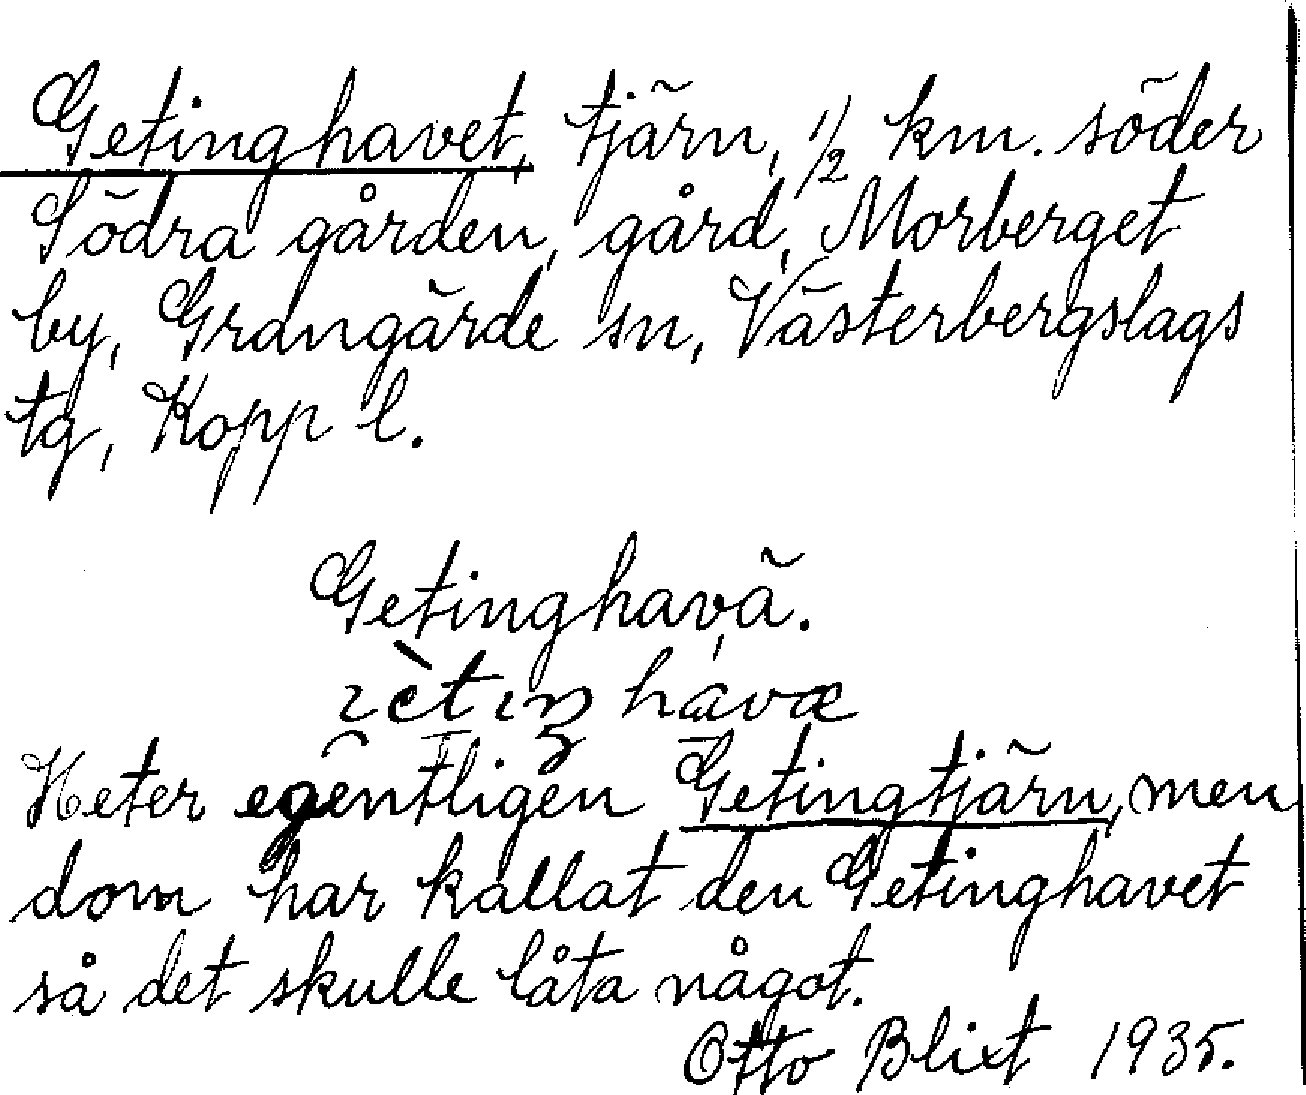 Getinghavet, tjärn, 1/2 km. söder
Södra gården, gård, Morberget
by, Grangärde sn, Västerbergslags
tg, Kopp l.
Getinghavä.
Heter egentligen Getingtjärn, men
dom har kallat den Getinghavet
så det skulle låta något.
Otto Blixt 1935.